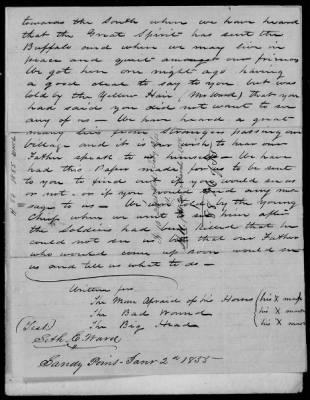 towards the South where we have heard
that the Great Spirit has sent the
Buffalo and where we may live in
peace and quiet amongst our friends
We got here one night ago having
a good deal to say to you but was
told by the Yellow Hair (Mr Ward) that you
had said you did not want to see
any of us — We have heard a great
many lies from Strangers passing our
village and it is our wish to hear our
Father speak to us himself — We have
had this Paper made for us to be sent
to you to find out if you would see us
or not or if you would send any mes
sage to us — We were told by the Young
Chief when we went to see him after
the Soldiers had been Killed that he
could not see us but that our Father
who would come up soon would see
us and tell us what to do —
Written for
The Man Afraid of his Horses (his X mark
The Bad Wound (his X mark
(Test) The Big Head (his X mark
Seth E Ward
Sandy Point Janr 2d 1855